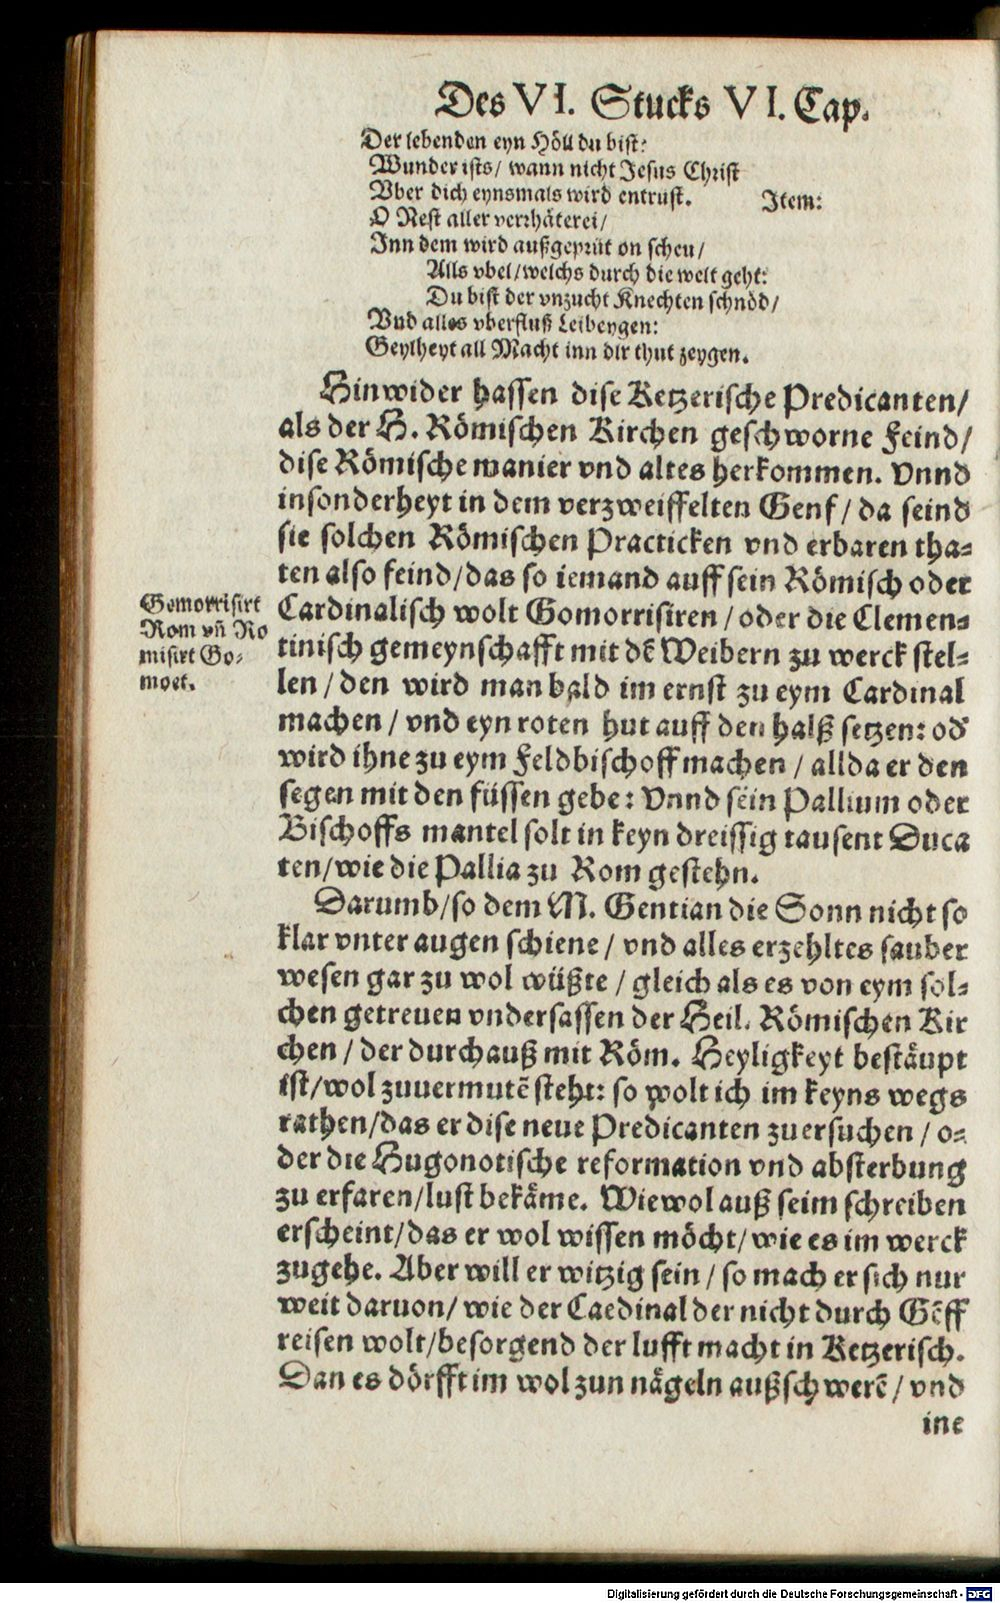 Des VI. Stucks VI. Cap.
Der lebenden eyn Höll du bist:
Wunder ists/ wann nicht Jesus Christ
Vber dich eynsmals wird entrust. Item:
O Nest aller verrhäterei/
Inn dem wird außgeprüt on scheu/
Alls vbel/welchs durch die welt geht:
Du bist der vnzucht Knechten schnöd/
Vnd alles vberfluß Leibeygen:
Geylheyt all Macht inn dir thut zeygen.
Hinwider hassen dise Ketzerische Predicanten/
als der H. Römischen Kirchen geschworne Feind/
dise Römische manier vnd altes herkommen. Vnnd
insonderheyt in dem verzweiffelten Genf/ da seind
sie solchen Römischen Practicken vnd erbaren tha-
ten also feind/das so iemand auff sein Römisch oder
Cardinalisch wolt Gomorrisiren/oder die Clemen-
tinisch gemeynschafft mit dē Weibern zu werck stel-
len/den wird man bald im ernst zu eym Cardinal
machen/ vnd eyn roten hut auff den halß setzen: od
wird ihne zu eym Feldbischoff machen/ allda er den
segen mit den füssen gebe: Vnnd sein Pallium oder
Bischoffs mantel solt in keyn dreissig tausent Duca
ten/wie die Pallia zu Rom gestehn.
Gomorrisirt
Rom vn̄ Ro
misirt Go-
moet.
Darumb/so dem M. Gentian die Sonn nicht so
klar vnter augen schiene/ vnd alles erzehltes sauber
wesen gar zu wol wüßte/ gleich als es von eym sol-
chen getreuen vndersassen der Heil. Römischen Kir
chen/der durchauß mit Röm. Heyligkeyt bestäupt
ist/wol zuuermutē steht: so wolt ich im keyns wegs
rathen/das er dise neue Predicanten zuersuchen/ o-
der die Hugonotische reformation vnd absterbung
zu erfaren/lust bekäme. Wiewol auß seim schreiben
erscheint/das er wol wissen möcht/wie es im werck
zugehe. Aber will er witzig sein/so mach er sich nur
weit daruon/wie der Caedinal der nicht durch Gēff
reisen wolt/besorgend der lufft macht in Ketzerisch.
Dan es dörfft im wol zun nägeln außschwerē/ vnd
ine
Digitalisierung gefördert durch die Deutsche Forschungsgemeinschaft - DFG